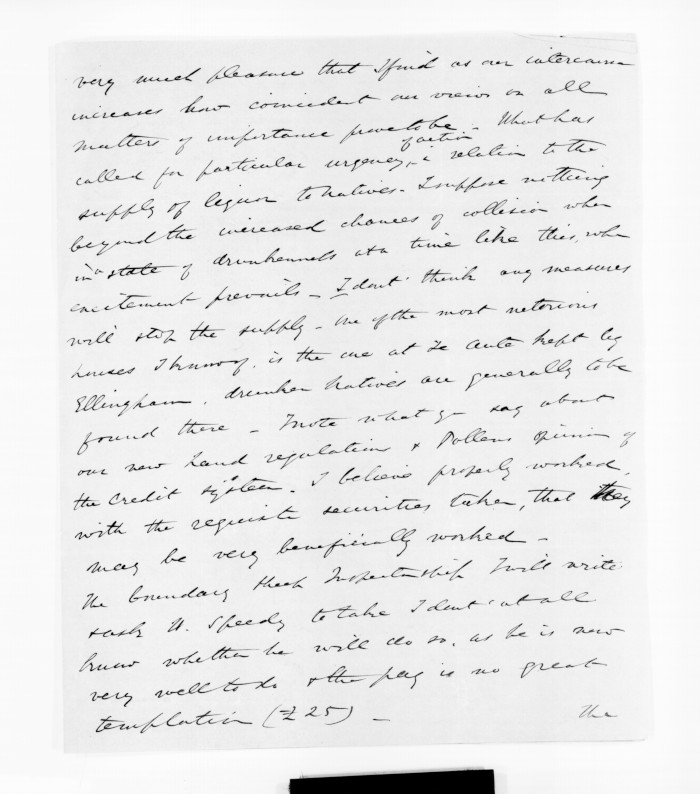 very much pleasure that I find as our intercourse
increases how coincident our views on all
matters of importance prove to be - What has
called for particular urgency of action in relation to the
supply of liquor to Natives - I suppose nothing
beyond the increased chances of collision when
in a state of drunkenness at a time like this, when
excitement prevails - I dont think any measures
will stop the supply - One of the most notorious
houses I know of, is the one at Te Aute kept by
Ellingham, drunken Natives are generally to be
found there - I note what you say about
our new Land regulation & Pollens opinion of
the credit system - I believe properly worked,
with the requisite securities taken, that they
may be very beneficially worked -
The boundary sheep Inspectorship I will write
& ask Speedy to take I dont at all
know whether he will do so, as he is now
very well to do & the pay is no great
temptation (£25) -
The